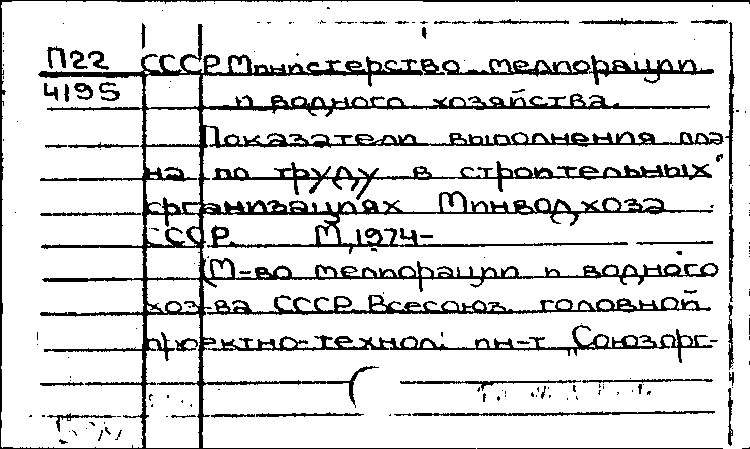 П22 СССР. Министерство мелиорации
4195 и водного хозяйства.
Показатели выполнения пла-
на по труду в строительных
организациях Минводхоза
СССР. М., 1974-
(М-во мелиорации и водного
хоз-ва СССР. Всесоюз. головной
проектно-технол. ин-т „Союзорг-